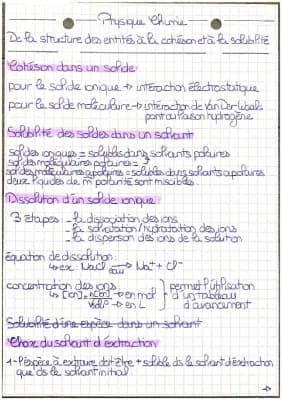 Physique Chimie
De la structure des entités à la cohésion et à la solubilité
Cohésion dans un solide
pour le solide ionique → interaction électrostatique
pour le solide moléculaire → interaction de Van Der Waals
pont ou liaison hydrogène
Solubilité des solides dans un solvant
solides ioniques = solubles dans solvants polaires
solides moléculaires polaires =
solides moléculaires apolaires = solubles dans solvants apolaires
deux liquides de m̂ polarité sont miscibles.
Dissolution d'un solide ionique
3 étapes - la dissociation des ions
- la solvatation/hydratation des ions
- la dispersion des ions de la solution
Équation de dissolution :
↳ ex: NaCl →eau Na⁺ + Cl⁻
concentration des ions :
↳ [Cn] = n(Cn) → en mol
Vsolu° → en L
} permet l'utilisation
d'un tableau
d'avancement
Solubilité d'une espèce dans un solvant
Choix du solvant d'extraction
1 - l'espèce à extraire doit être + soluble ds le solvant d'extraction
que ds le solvant initial.
→